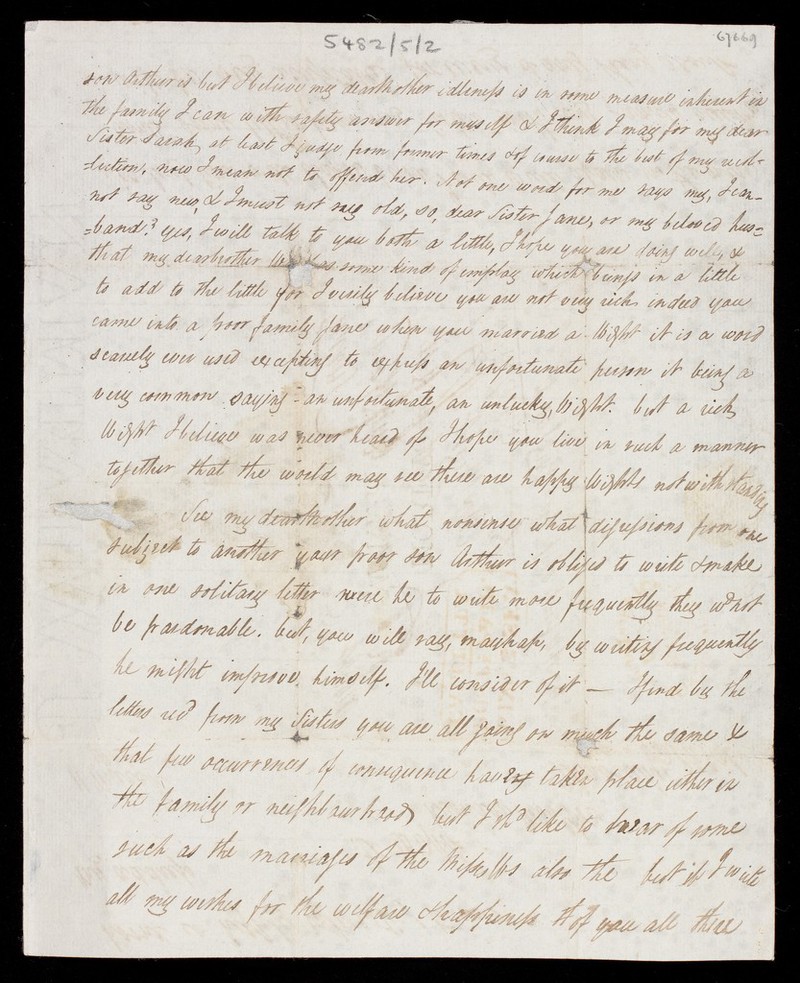 5482/5/2
67669
son Arthur is but I believe my dearMother idleness is in some measure inherent in
the family I can with safety answer for myself & I think I may for my dear
Sister Sarah, at least I judge from former times & of course to the best of my recol=
=lection, now I mean not to offend her. Not one word for me says my, I can=
not say new, & I must not say old, so, dear Sister Jane, or my beloved hus=
=band? yes, I will talk to you both a little, I hope you are doing well, &
that my dearbrother has some kind of employ which brings in a little
to add to the little for I verily believe you are not very rich indeed you
came into a poor family Jane when you married a Wight it is a word
scarcely ever used excepting to express an unfortunate person it being a
very common saying - an unfortunate, an unlucky, Wight. but a rich
Wight I believe was never heard of I hope you live in such a manner
together that the world may see there are happy Wights notwithstanding
See my dearMother what nonsense what digressions from one
subject to another your poor son Arthur is obliged to write & make
in one solitary letter were he to write more frequently they wd not
be pardonable. but, you will say, mayhap, by writing frequently
he might improve himself. I'll consider of it — I find by the
letters recd from my Sisters you are all going on much the same &
that few occurrences of consequence have taken place either in
the family or neighbourhood but I shd like to hear of some
such as the marriages of the Miss also the best if I write
all my wishes for the welfare & happiness of you all there